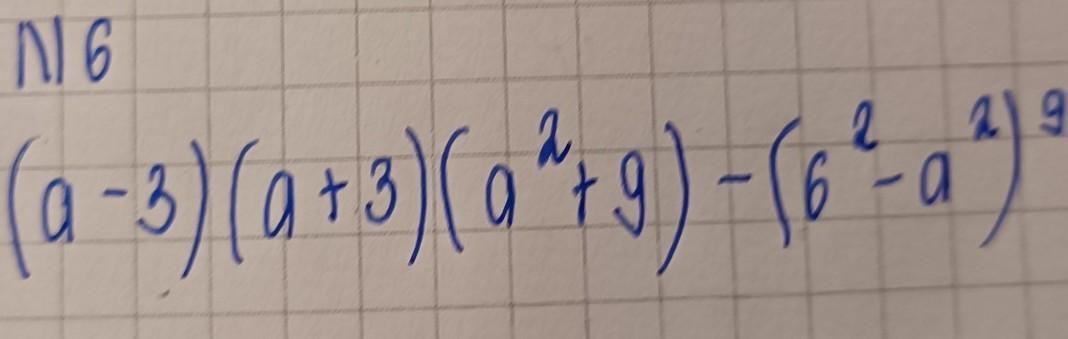 N6
(a-3)(a+3)(a²+9)-(6²-a²)⁹